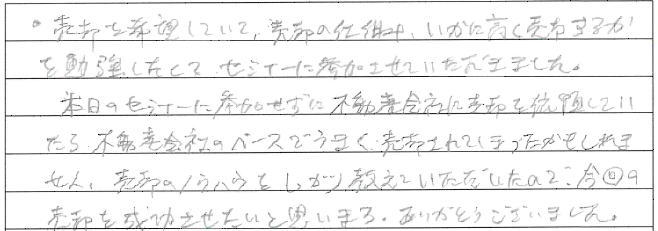 ・売却を希望していて、売却の仕組み、いかに高く売却するか
を勉強したくて セミナーに参加させていただきました。
本日のセミナーに参加せずに 不動産会社に売却を依頼してい
たら 不動産会社のペースでうまく 売却されてしまったかもしれま
せん、売却のノウハウをしっかり教えていただいたので、今回の
売却を成功させたいと思います。ありがとうございました。